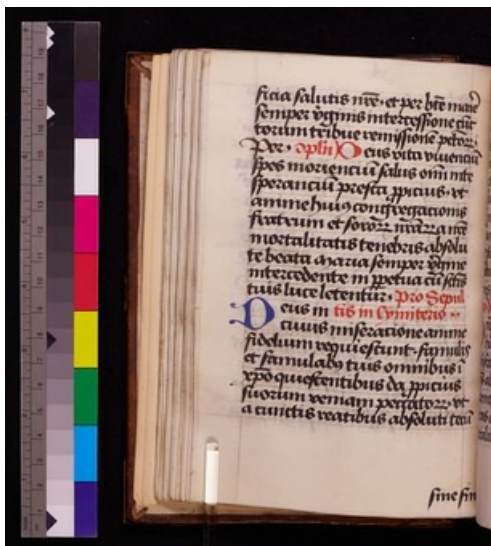 ficia salutis nrē· et per btē marie
semper v̄ginis intercessione cūc
torum tribue remissionē pctor̄·
Per· opli) Deus vita viventiū
spes morienciū salus omī inte
speranciū presta p̄picius· vt
anime huiꝯ congregacionis
fratrum et soror̄ nr̄ar̄ a nr̄e
mortalitatis tenebris absolu
te beata maria semper v̄gine
intercedente in p̄petua cū sctīs
tuis luce letentur· Pro Sepul
Deus in tis in Cymiterio ··
cuius miseracione anime
fidelium requiescunt· famulis
et famulab᷒ tuis omnibus ī
xp̄o quiescentibus da p̄picius
suorum veniam peccator̄· vt
a cunctis reatibus absoluti tecū
sine fin